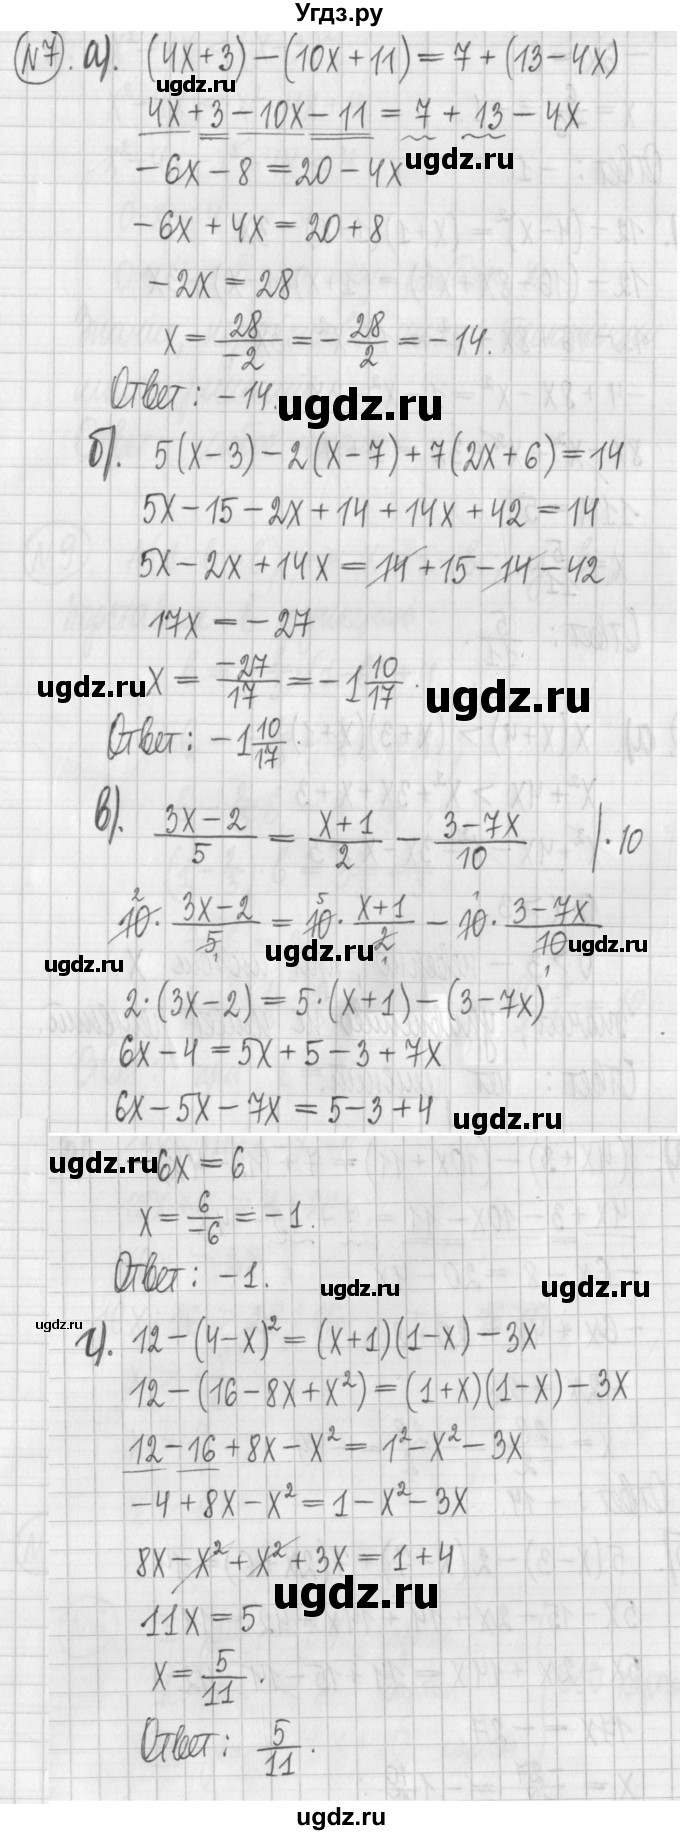 Угдз.ру
№7. а). (4x+3)−(10x+11)=7+(13−4x)
ugdz.ru
4x+3−10x−11=7+13−4x
ugdz.ru
−6x−8=20−4x
−6x+4x=20+8
−2x=28
x=28/−2=−28/2=−14.
Ответ: −14.
ugdz.ru
б). 5(x−3)−2(x−7)+7(2x+6)=14
5x−15−2x+14+14x+42=14
5x−2x+14x=14+15−14−42
17x=−27
ugdz.ru
x=−27/17=−1 10/17.
ugdz.ru
Ответ: −1 10/17.
в). (3x−2)/5=(x+1)/2−(3−7x)/10 |·10
2 5 1
10·(3x−2)/5=10·(x+1)/2−10·(3−7x)/10
1 1 1
ugdz.ru ugdz.ru ugdz.ru
2·(3x−2)=5·(x+1)−(3−7x)
6x−4=5x+5−3+7x
6x−5x−7x=5−3+4
ugdz.ru
ugdz.ru
6x=6
x=6/−6=−1.
Ответ: −1.
ugdz.ru ugdz.ru
ugdz.ru
г). 12−(4−x)²=(x+1)(1−x)−3x
12−(16−8x+x²)=(1+x)(1−x)−3x
12−16+8x−x²=1²−x²−3x
−4+8x−x²=1−x²−3x
8x−x²+x²+3x=1+4
ugdz.ru
11x=5
x=5/11.
Ответ: 5/11.
ugdz.ru